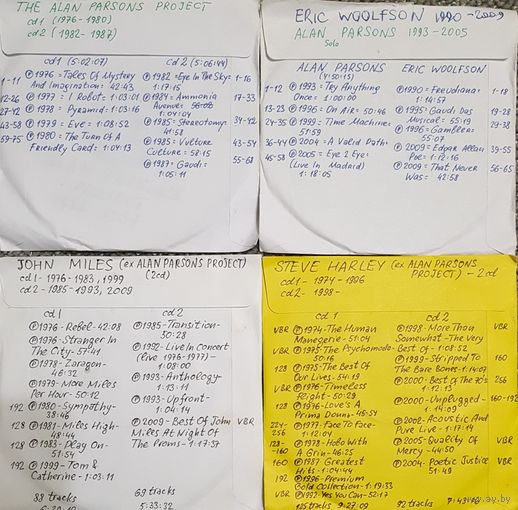 THE ALAN PARSONS PROJECT
cd1 (1976-1980)
cd2 (1982-1987)
cd1 (5:02:07)
1-11 ℗1976 = Tales Of Mystery
And Imagination: 42:43
12-26 ℗1977 = I Robot = 1:03:01
27-42 ℗1978 = Pyramid = 1:03:16
43-58 ℗1979 = Eve = 1:08:52
59-75 ℗1980 = The Turn Of A
Friendly Card = 1:04:13
cd2 (5:06:44)
℗1982 = Eye In The Sky = 1-16
1:17:43
℗1984 = Ammonia 17-33
Avenue =
1:04:04
℗1985 = Stereotomy = 34-42
41:58
℗1985 = Vulture 43-54
Culture = 58:15
℗1987 = Gaudi = 55-68
1:05:11
ERIC WOOLFSON 1990-2009
ALAN PARSONS 1993-2005
Solo
ALAN PARSONS
(4:50:15)
1-12 ℗1993 = Try Anything
Once = 1:00:00
13-23 ℗1996 = On Air = 50:46
24-35 ℗1999 = Time Machine =
51:59
36-44 ℗2004 = A Valid Path =
45-58 ℗2005 = Eye 2 Eye
(Live In Madrid)
1:18:05
ERIC WOOLFSON
℗1990 = Freudiana = 1-18
1:14:57
℗1995 = Gaudi Das 19-28
Musical = 55:19
℗1996 = Gambler = 29-38
55:07
℗2009 = Edgar Allan 39-55
Poe = 1:12:16
℗2009 = That Never 56-65
Was = 42:58
JOHN MILES (ex ALAN PARSONS PROJECT)
(2cd)
cd1 - 1976-1983, 1999
cd2 - 1985-1993, 2009
cd1
℗1976 - Rebel - 42:08
℗1976 - Stranger In
The City - 57:41
℗1978 - Zaragon -
46:32
℗1979 - More Miles
Per Hour - 50:12
192 ℗1980 - Sympathy -
38:46
128 ℗1981 - Miles High -
48:44
128 ℗1983 - Play On -
51:54
192 ℗1999 - Tom &
Catherine - 1:03:11
88 tracks
cd2
℗1985 - Transition -
50:28
℗1992 - Live In Concert
(live 1976-1977) -
1:08:00
℗1993 - Anthology -
1:13:11
℗1993 - Upfront -
1:04:14
℗2009 - Best Of John VBR
Miles At Night Of
The Proms - 1:17:37
69 tracks
5:33:32
STEVE HARLEY (ex ALAN PARSONS
PROJECT) - 2cd
cd1 - 1974-1996
cd2 - 1998 -
cd 1
VBR ℗1974 - The Human
Menegerie - 51:04
VBR ℗1975 The Psychomodo -
50:16
128 ℗1975 - The Best Of
Our Lives - 54:19
VBR ℗1976 - Timeless
Flight - 50:29
128 ℗1976 - Love's A
Prima Donna - 45:54
224-256 ℗1977 - Face To Face -
1:12:04
128-160 ℗1978 - Hobo With
A Grin - 46:25
160 ℗1987 Greatest
Hits - 1:04:44
192 ℗1996 - Premium
Gold Collection - 1:19:33
VBR ℗1992 - Yes You Can - 52:17
125 tracks 9:27:09
cd 2
℗1998 - More Than VBR
Somewhat - The Very
Best Of - 1:08:52
℗1999 - Stripped To 160
The Bare Bones - 1:14:07
℗2000 - Best Of The 70's 256
1:12:13
℗2000 - Unplugged - 160-192
1:14:09
℗2002 - Acoustic And
Pure Live - 1:17:14
℗2005 - Quality Of VBR
Mercy - 44:50
℗2004 - Poetic Justice VBR
51:49
92 tracks